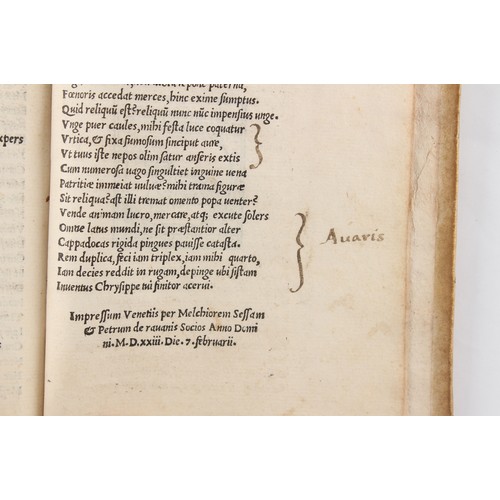 xpers
paterna,
Fœnoris accedat merces, hinc exime sumptus.
Quid reliquũ est?reliquũ nunc nũc impensius unge.
Vnge puer caules, mihi festa luce coquatur
Vrtica, & fixa fumosum sinciput aure,
Vt tuus iste nepos olim satur anseris extis
Cum numerosa uago singultiet inguine uena
Patritiæ immeiat uuluæ?mihi trama figuræ
Sit reliqua?ast illi tremat omento popa uenter?
Vende animam lucro, mercare, atq; excute solers
Omne latus mundi, ne sit præstantior alter
Cappadocas rigida pingues pauisse catasta.
Rem duplica, feci iam triplex, iam mihi quarto,
Iam decies reddit in rugam, depinge ubi sistam
Inuentus Chrysippe tui finitor acerui.
Auaris
Impressum Venetiis per Melchiorem Sessam
& Petrum de rauanis Socios Anno Domi
ni. M.D.xxiii. Die. 7. februarii.